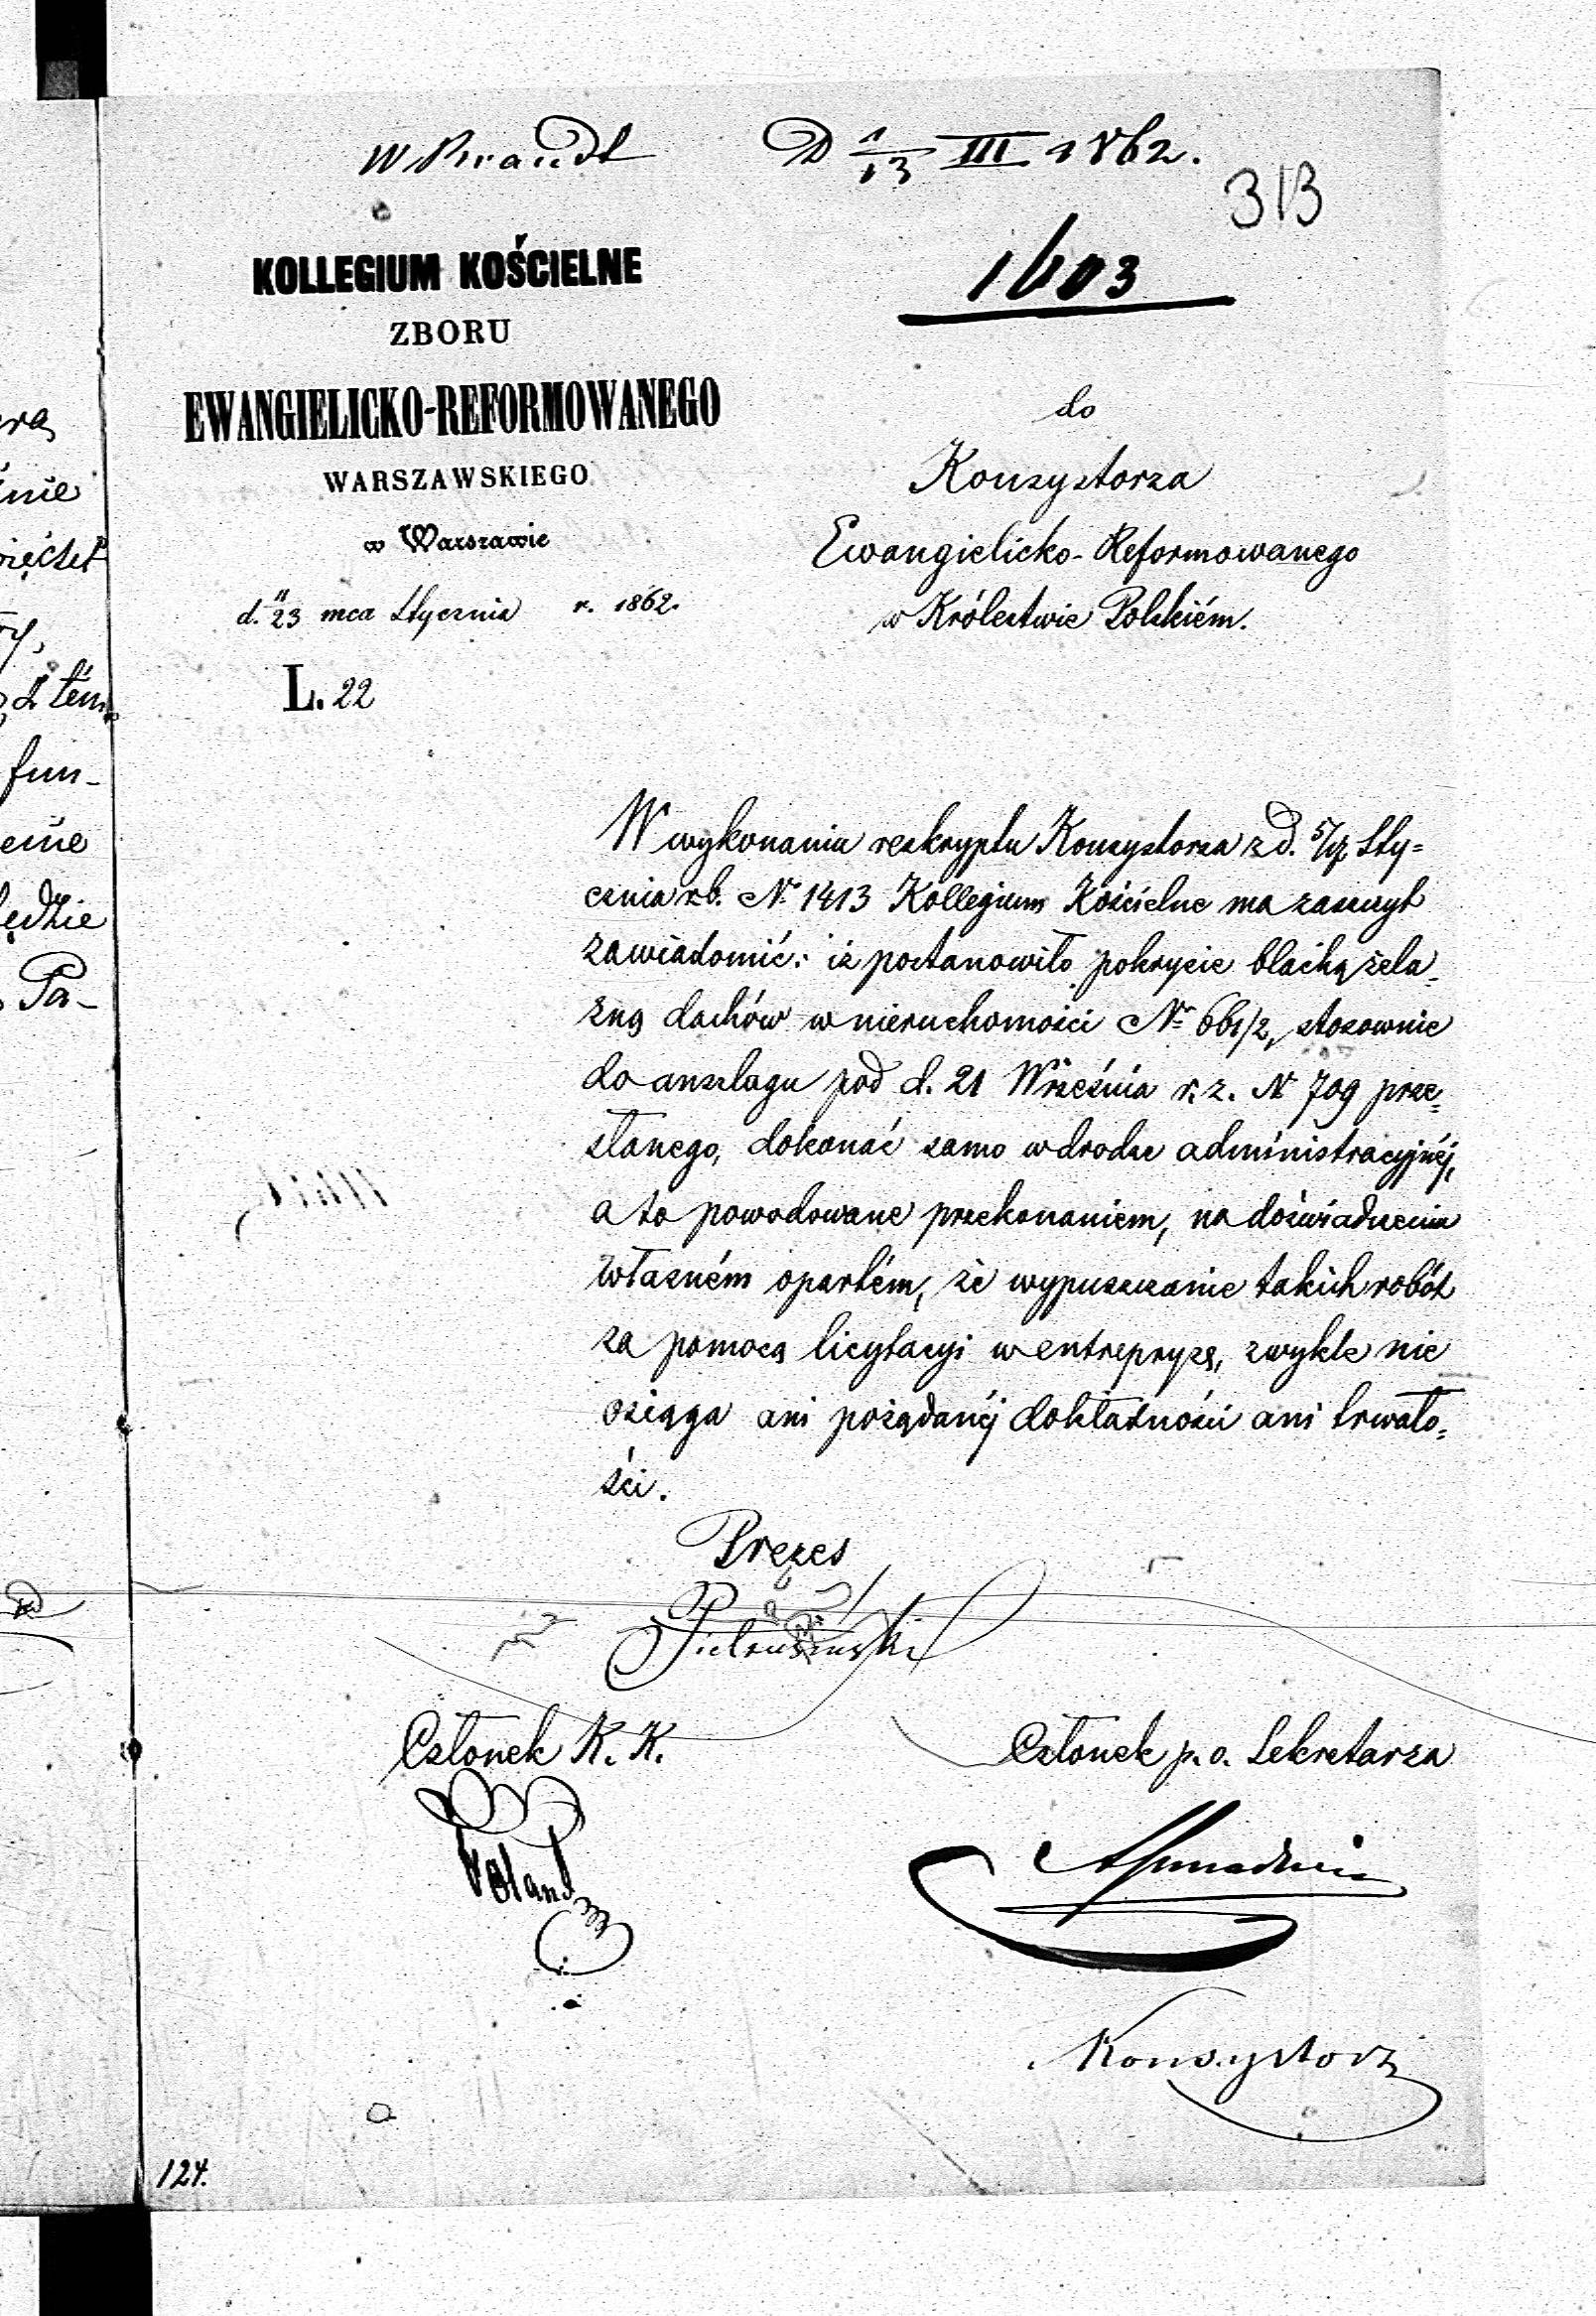 W Brandt D 1/13 III 1862.
313
1603
KOLLEGIUM KOŚCIELNE
ZBORU
EWANGIELICKO-REFORMOWANEGO
WARSZAWSKIEGO
w Warszawie
d. 11/23 mca Stycznia r. 1862.
L. 22
do
Konsystorza
Ewangielicko-Reformowanego
w Królestwie Polskiém.
W wykonaniu reskryptu Konsystorza z d. 5/17 Sty=
cznia r.b. No 1413 Kollegium Kościelne ma zaszczyt
zawiadomić: iż postanowiło pokrycie blachą żela-
zną dachów w nieruchomości No 661/2, stosownie
do anszlagu pod d. 21 Września r. z. N 709 prze=
słanego, dokonać samo w drodze administracyjnéj,
a to powodowane przekonaniem, na doświadczeniu
własném opartém, że wypuszczanie takich robót
za pomocą licytacyi w entrepryzę, zwykle nie
osiąga ani pożądanéj dokładności ani trwało=
ści.
Prezes
Pietrusiński
Członek K. K.
Członek p. o. Sekretarza
Roland
Konsystorz
124.
era
nie
d tém
fun-
enie
będzie
Pa-